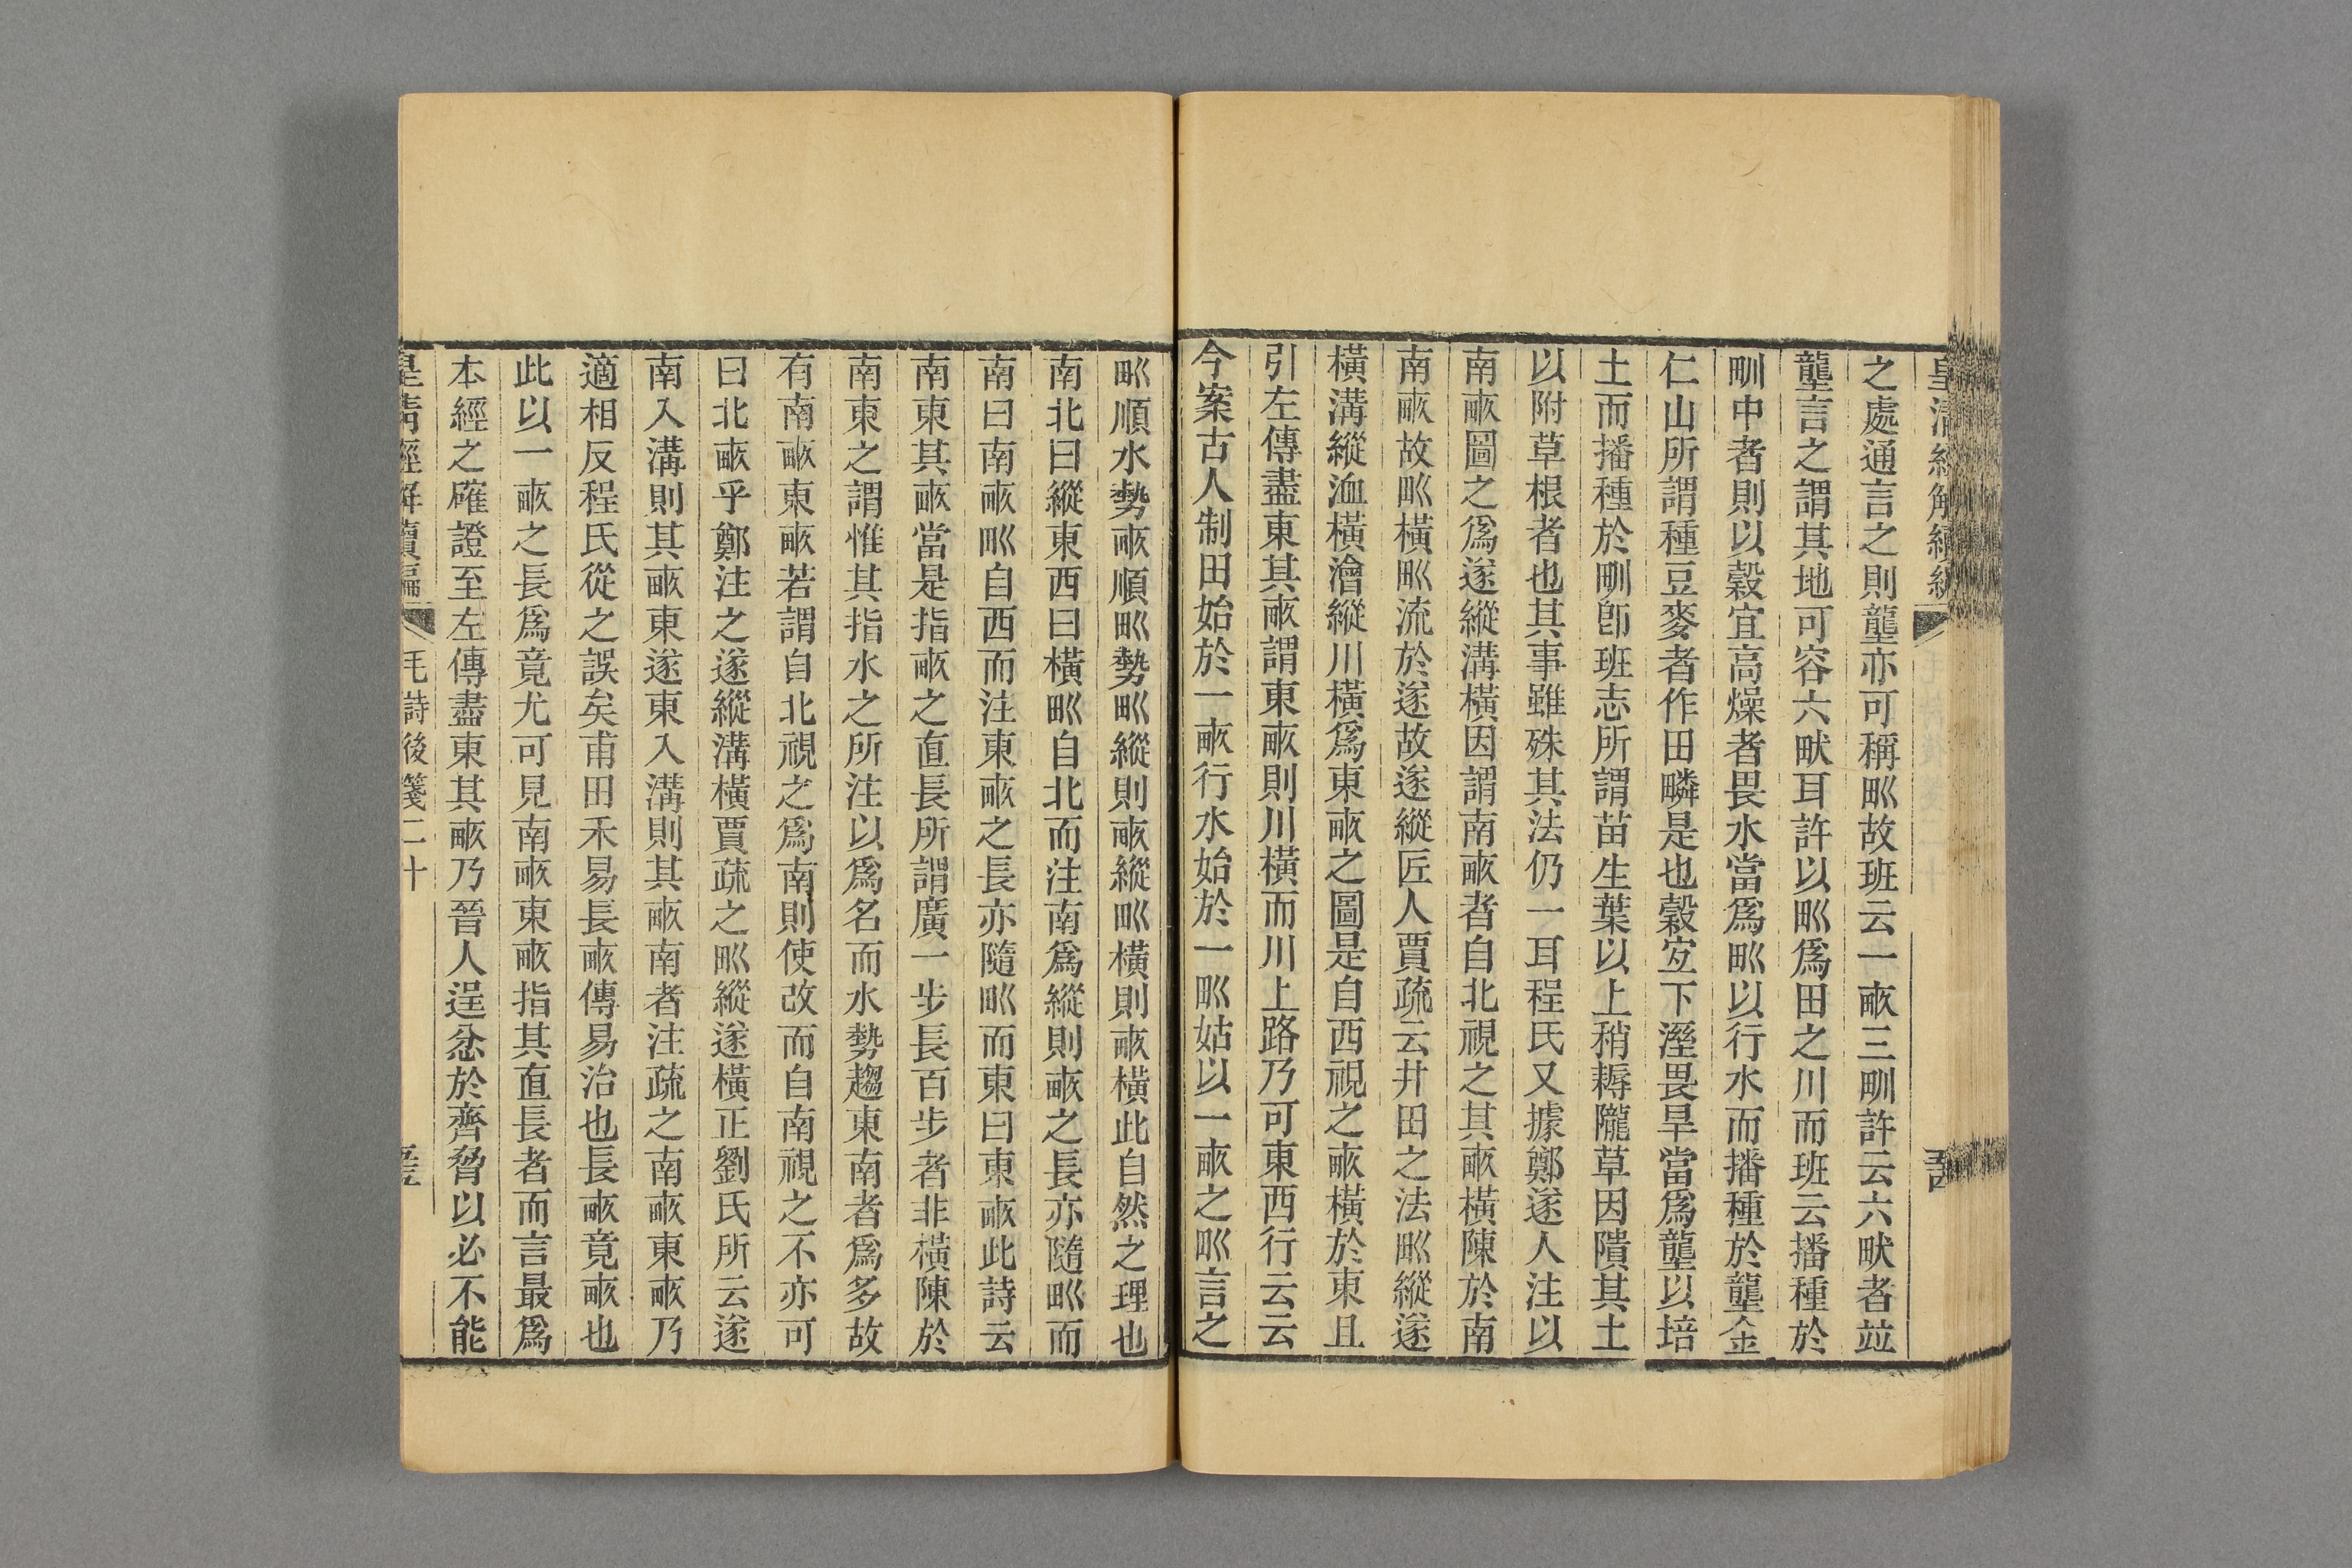 皇清經解續編
之處通言之則壟亦可稱甽故班云一畮三甽許云六畎者竝
壟言之謂其地可容六畎耳許以甽爲田之川而班云播種於
甽中者則以穀宜高燥者畏水當爲甽以行水而播種於壟金
仁山所謂種豆麥者作田疄是也穀宐下溼畏旱當爲壟以培
土而播種於甽卽班志所謂苗生葉以上稍耨隴草因隤其土
以附草根者也其事雖殊其法仍一耳程氏又據鄭遂人注以
南畮圖之爲遂縱溝橫因謂南畮者自北視之其畮橫陳於南
南畮故甽橫甽流於遂故遂縱匠人賈疏云井田之法甽縱遂
橫溝縱洫橫澮縱川橫爲東畮之圖是自西視之畮橫於東且
引左傳盡東其畮謂東畮則川橫而川上路乃可東西行云云
今案古人制田始於一畮行水始於一甽姑以一畮之甽言之
甽順水勢畮順甽勢甽縱則畮縱甽橫則畮橫此自然之理也
南北曰縱東西曰橫甽自北而注南爲縱則畮之長亦隨甽而
南曰南畮甽自西而注東畮之長亦隨甽而東曰東畮此詩云
南東其畮當是指畮之直長所謂廣一步長百步者非橫陳於
南東之謂惟其指水之所注以爲名而水勢趨東南者爲多故
有南畮東畮若謂自北視之爲南則使改而自南視之不亦可
曰北畮乎鄭注之遂縱溝橫賈疏之甽縱遂橫正劉氏所云遂
南入溝則其畮東遂東入溝則其畮南者注疏之南畮東畮乃
適相反程氏從之誤矣甫田禾易長畮傳易治也長畮竟畮也
此以一畮之長爲竟尤可見南畮東畮指其直長者而言最爲
本經之確證至左傳盡東其畮乃晉人逞忿於齊脅以必不能
皇清經解續編
毛詩後箋二十